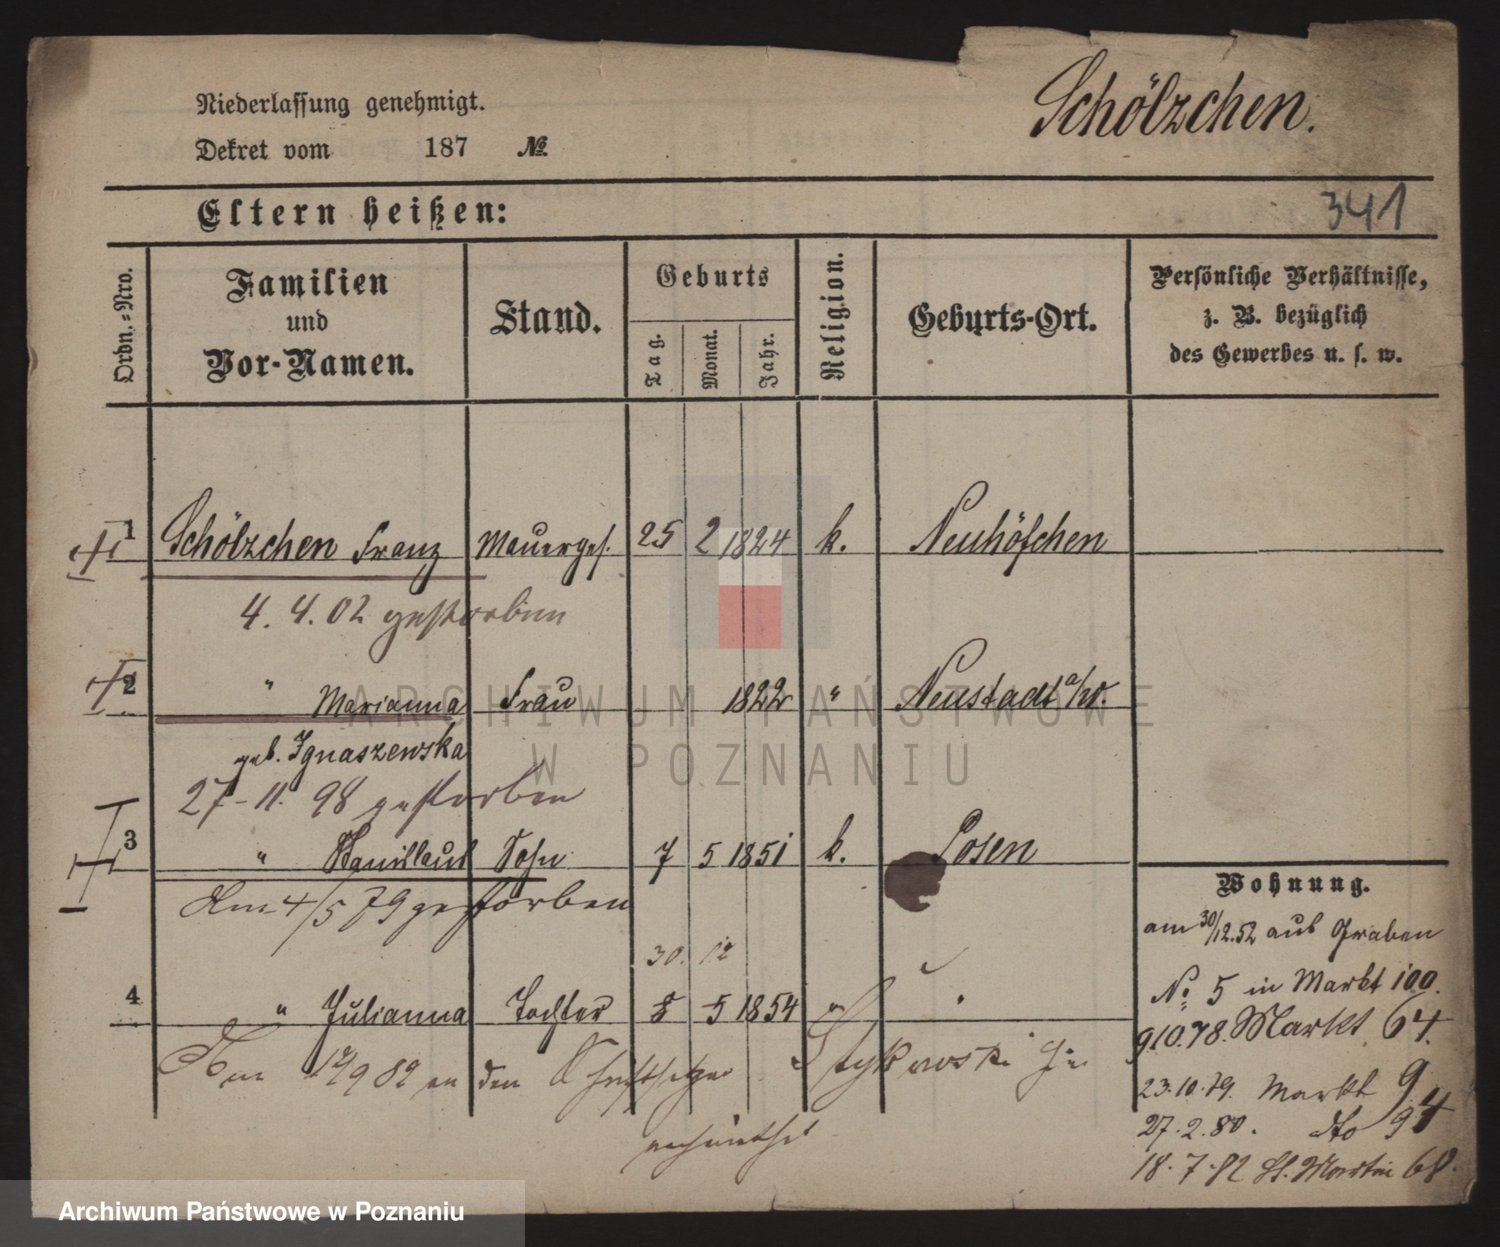 Schölzchen.
Niederlassung genehmigt.
Dekret vom 187 No.
Eltern heißen:
341
Ordn.-Nro.
Familien und Vor-Namen.
Stand.
Geburts
Tag. Monat. Jahr.
Religion.
Geburts-Ort.
Persönliche Verhältnisse,
z. B. bezüglich
des Gewerbes u. s. w.
1 Schölzchen Franz Mauerges. 25 2 1824 k. Neuhöfchen
4. 4. 02 gestorben
2 " Marianna Frau 1822 " Neustadt a/W.
geb. Ignaszewska
27-11. 98 gestorben
3 " Stanislaus Sohn 7 5 1851 k. Posen
Am 4/5 79 gestorben
30. 12
4 " Julianna Tochter 8 5 1854 " "
Am 12/9 82 an den Schriftsetzer
verheirathet
Wohnung.
am 30/12.52 aus Graben
No 5 in Markt 100.
9 10. 78. Markt 64.
23. 10. 79. Markt 9
27. 2. 80. dto 94
18. 7. 82 St. Martin 68.
ARCHIWUM PAŃSTWOWE
W POZNANIU
Archiwum Państwowe w Poznaniu